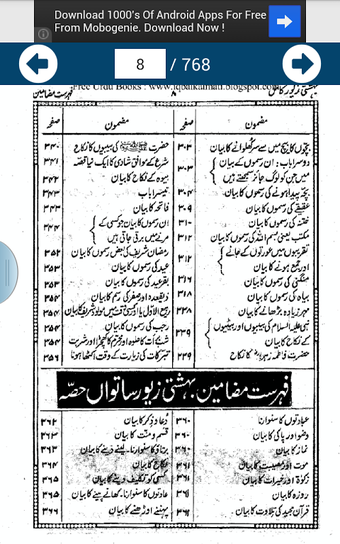 Download 1000's Of Android Apps For Free
From Mobogenie. Download Now !
8 / 768
Free Urdu Books : www.iqbalkalmati.blogspot.com
فہرست مضامین
۸
مضمون
صفحہ
مضمون
صفحہ
بچوں کا بیچ میں سے سر کھلوانے کا بیان
۳۰۳
دوسرا باب : ان رسموں کے بیان
میں جن کو لوگ جائز سمجھتے ہیں
۳۰۳
بچہ پیدا ہونے کی رسموں کا بیان
۳۰۴
عقیقے کی رسموں کا بیان
۳۰۹
ختنہ کی رسموں کا بیان
۳۱۰
مکتب یعنی بسم اللہ کی رسموں کا بیان
۳۱۲
تقریبوں میں عورتوں کے جانے
اور جمع ہونے کا بیان
۳۱۲
منگنی کی رسموں کا بیان
۳۱۶
بیاہ کی رسموں کا بیان
۳۱۸
مہر زیادہ بڑھانے کا بیان
نبی علیہ السلام کی بیبیوں اور بیٹیوں
کے نکاح کا بیان
۳۳۹
حضرت فاطمہ زہرا کا نکاح
۳۳۹
حضرت کی بیبیوں کا نکاح
۳۴۰
شرع کے موافق شادی کا ایک نیا قصہ
۳۴۱
بیوہ کے نکاح کا بیان
۳۴۲
تیسرا باب
۳۴۳
فاتحہ کا بیان
۳۴۳
ان رسموں کا بیان جو کسی کے
مرنے میں برتی جاتی ہیں
رمضان شریف کی بعض رسموں کا بیان
۳۵۲
عید کی رسموں کا بیان
۳۵۳
بقرعید کی رسموں کا بیان
ذیقعدہ اور صفر کی رسم کا بیان
رجب کی رسموں کا بیان
تبرکات کی زیارت کے وقت اکٹھا ہونا
۳۵۶
فہرست مضامین بہشتی زیور ساتواں حصہ
عبادتوں کا سنوارنا
۳۶۰
وضو اور پاکی کا بیان
۳۶۰
نماز کا بیان
موت اور مصیبت کا بیان
زکوٰۃ اور خیرات کا بیان
روزہ کا بیان
قرآن مجید کی تلاوت کا بیان
دعا و ذکر کا بیان
۳۶۲
قسم و منت کا بیان
۳۶۳
نکاح کا بیان
۳۶۴
کسی کو تکلیف دینے کا بیان
۳۶۵
عادتوں کا سنوارنا، کھانے پینے کا بیان
۳۶۵
پہننے اوڑھنے کا بیان
۳۶۶